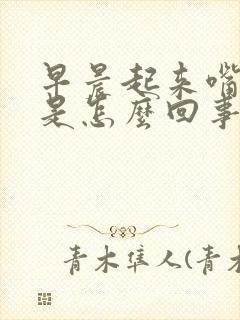 早晨起来嘴
是怎麽回事
青木隼人(青木